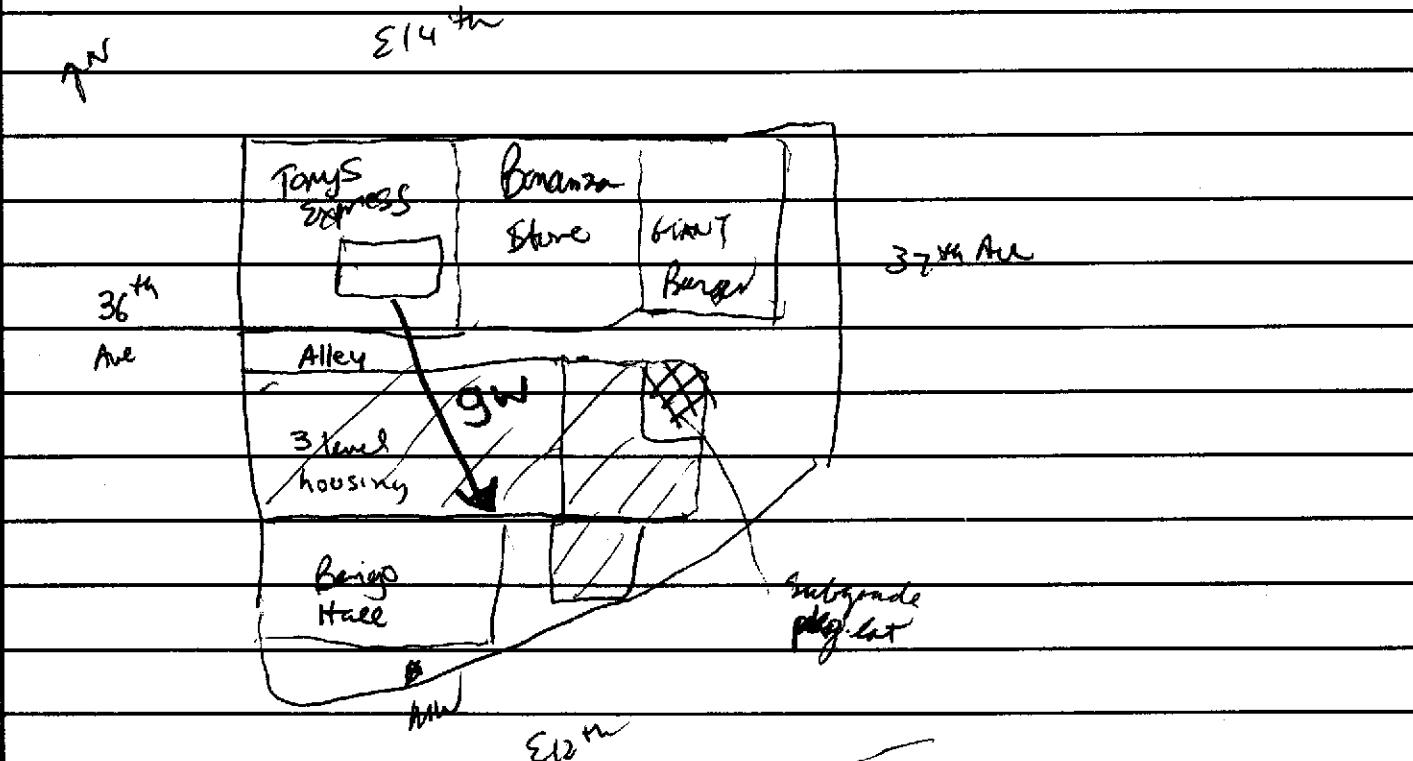 E14th
N
Tonys
Express
Bonanza
Store
GIANT
Burger
37th Ave
36th
Ave
Alley
gw
3 level
housing
Bingo
Hall
Subgrade
pkg. lot
MW
E12th